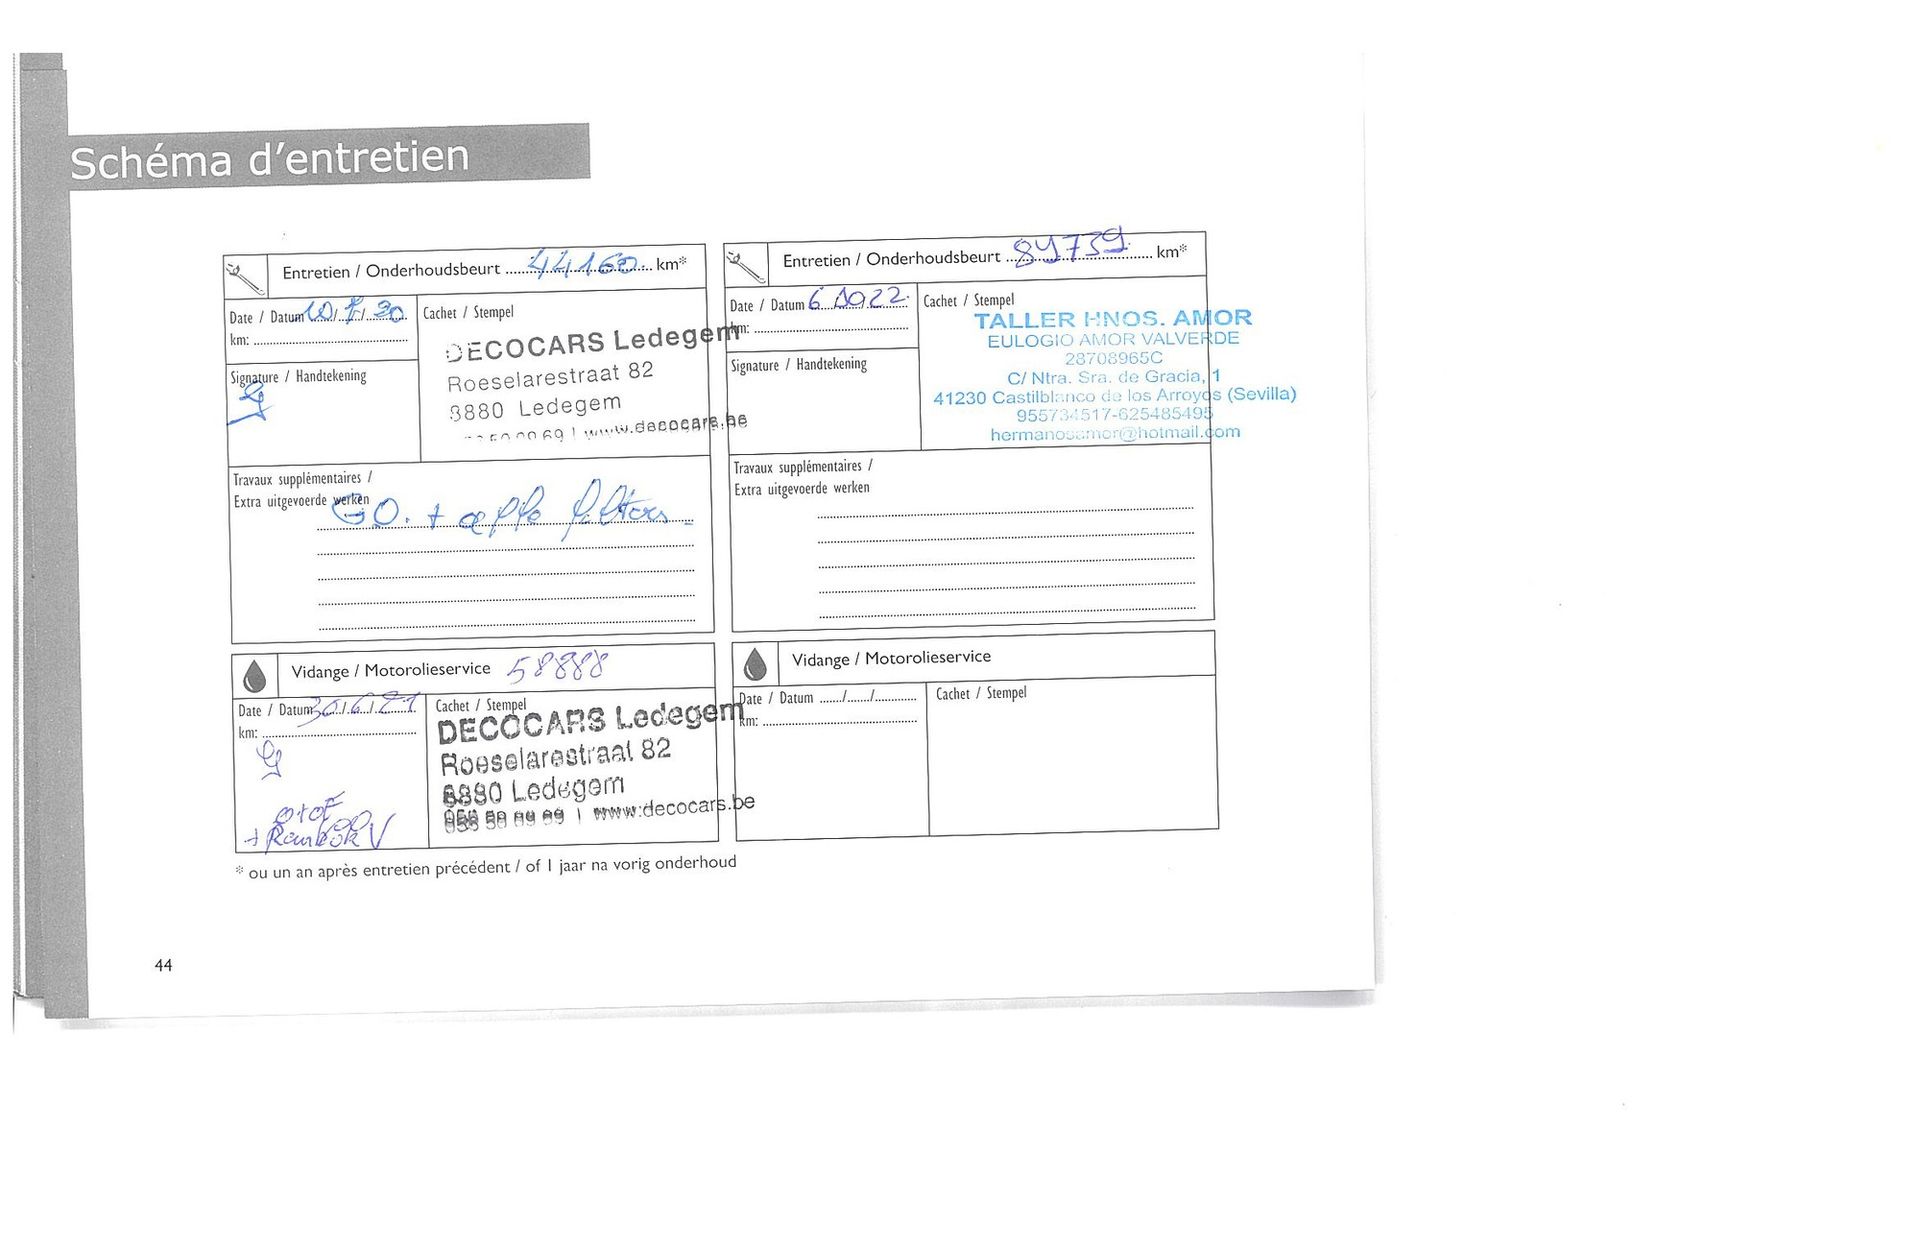 Schéma d'entretien
Entretien / Onderhoudsbeurt 44160 km*
Date / Datum 10/7/20
km:
Cachet / Stempel
DECOCARS Ledegem
Roeselarestraat 82
8880 Ledegem
www.decocars.be
Signature / Handtekening
Travaux supplémentaires /
Extra uitgevoerde werken
GO. + alle filters
Vidange / Motorolieservice 58888
Date / Datum 30/6/21
km:
Cachet / Stempel
DECOCARS Ledegem
Roeselarestraat 82
8880 Ledegem
056 50 09 69 | www.decocars.be
O+OF
Entretien / Onderhoudsbeurt 89739 km*
Date / Datum 6 10 22
km:
Cachet / Stempel
TALLER HNOS. AMOR
EULOGIO AMOR VALVERDE
28708965C
C/ Ntra. Sra. de Gracia, 1
41230 Castilblanco de los Arroyos (Sevilla)
955734517-625485495
hermanosamor@hotmail.com
Signature / Handtekening
Travaux supplémentaires /
Extra uitgevoerde werken
Vidange / Motorolieservice
Date / Datum ....../....../............
km:
Cachet / Stempel
* ou un an après entretien précédent / of 1 jaar na vorig onderhoud
44